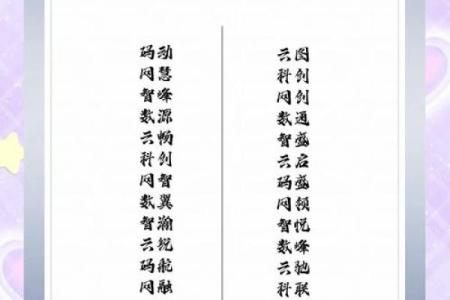 码动
网慧
智峰
数源
云畅
科创
网智
数翼
智瀚
云锐
码航
网融
云图
科创
网创
数通
智盛
云启
码盛
网频
智悦
数峰
云驰
科联